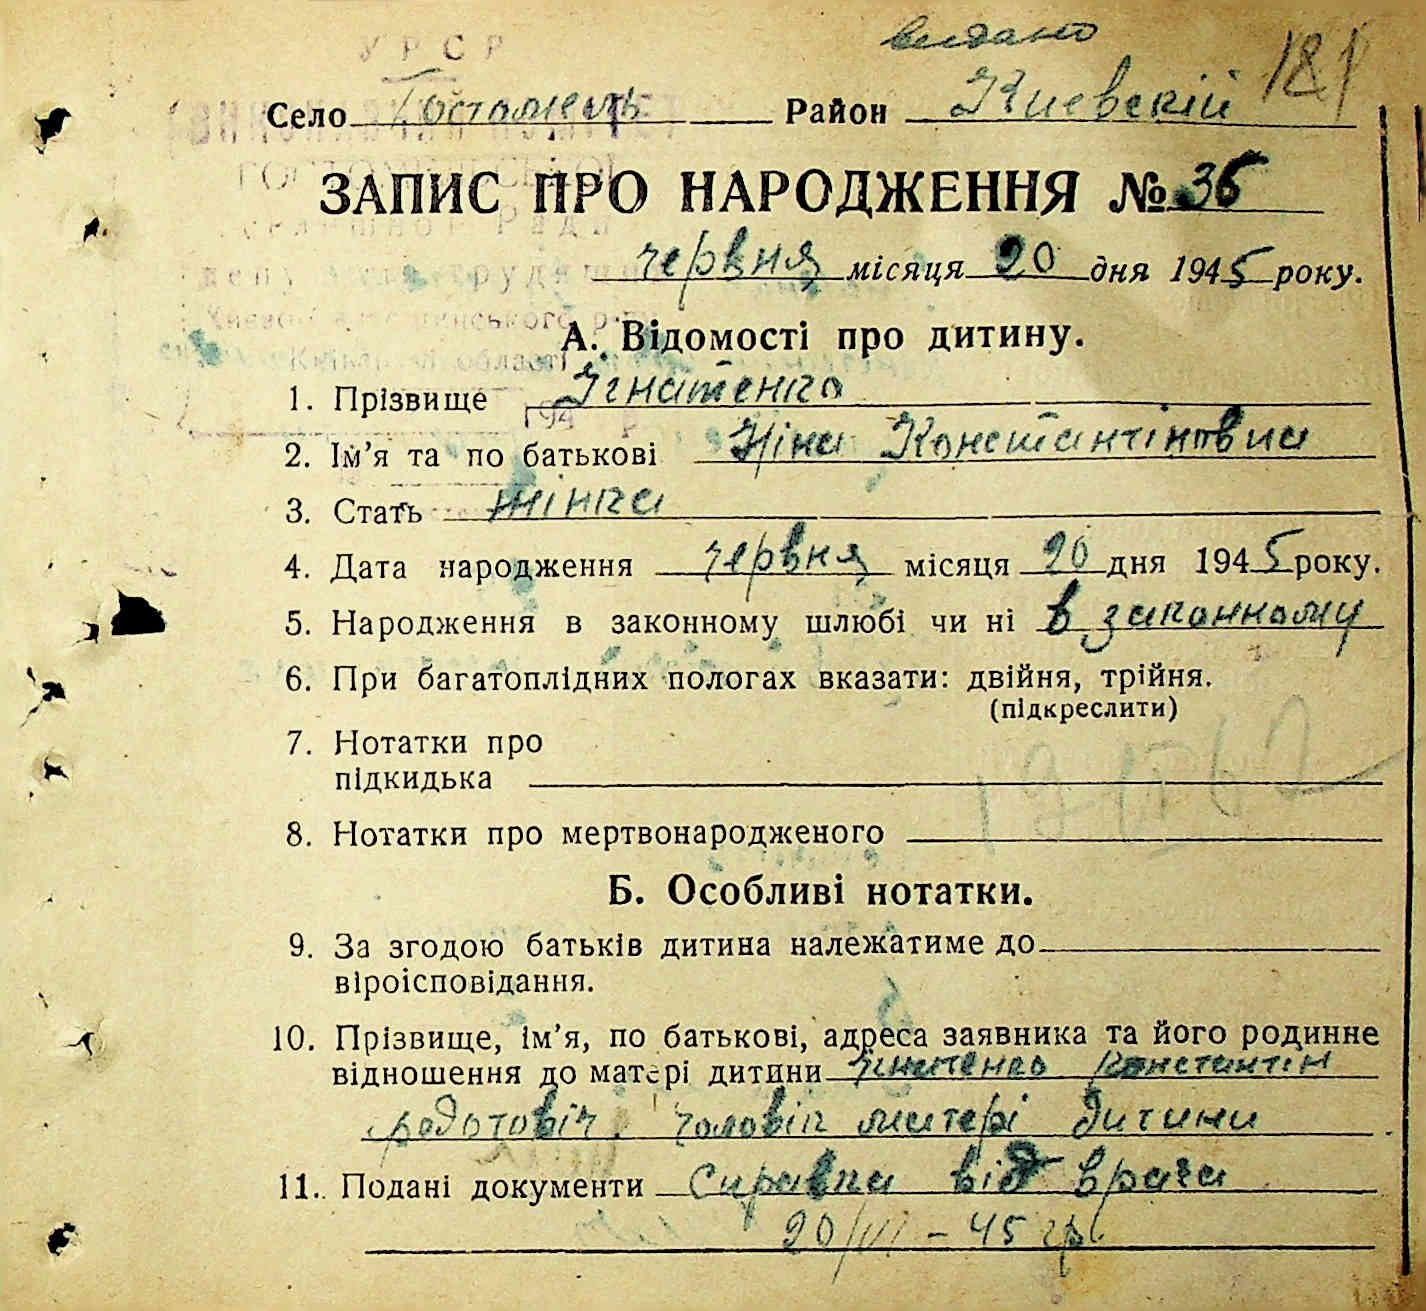 видано
181
УРСР
Село Гостомель Район Киевскій
ЗАПИС ПРО НАРОДЖЕННЯ № 36
червня місяця 20 дня 1945 року.
А. Відомості про дитину.
1. Прізвище Ігнатенко
194
2. Ім'я та по батькові Ніна Константіновна
3. Стать жінка
4. Дата народження червня місяця 20 дня 1945 року.
5. Народження в законному шлюбі чи ні в законному
6. При багатоплідних пологах вказати: двійня, трійня.
(підкреслити)
7. Нотатки про
підкидька
8. Нотатки про мертвонародженого
Б. Особливі нотатки.
9. За згодою батьків дитина належатиме до
віроісповідання.
10. Прізвище, ім'я, по батькові, адреса заявника та його родинне
відношення до матері дитини Ігнатенко Константін
Федотовіч. чоловік матері дитини
11. Подані документи Справка від врача
20/VI – 45 р.